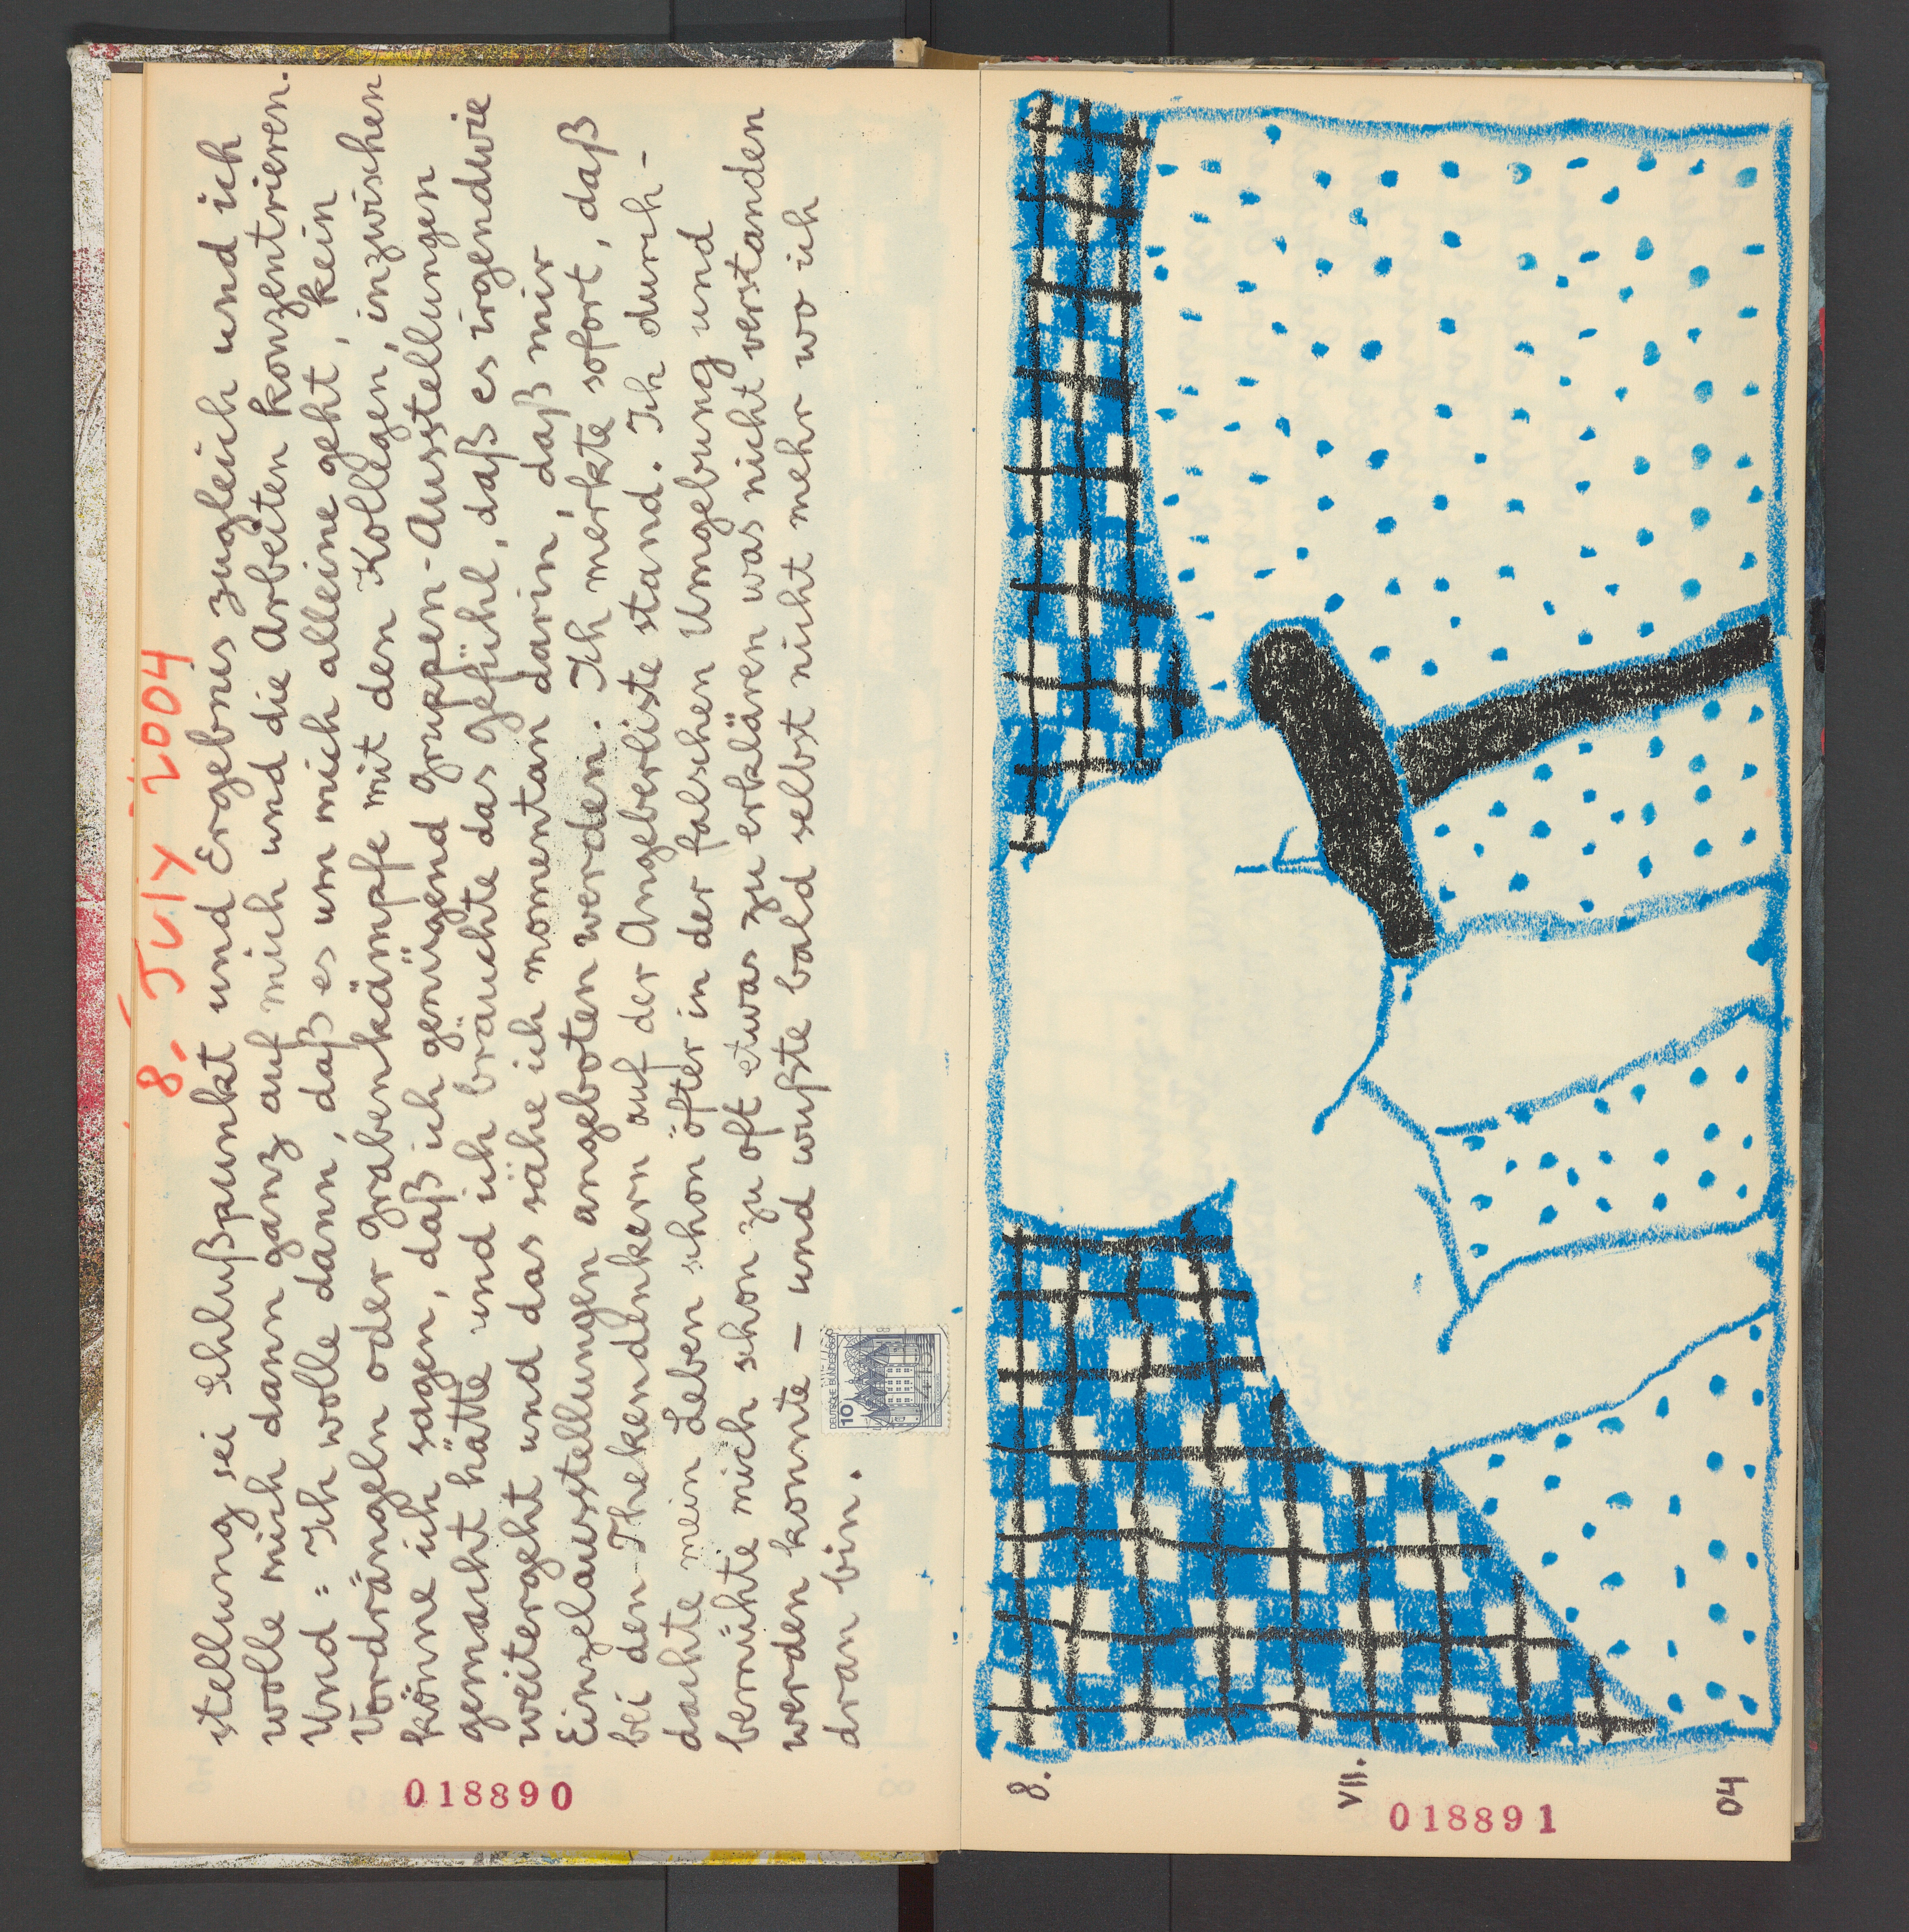 8. July 2004
stellung sei Schlußpunkt und Ergebnis zugleich und ich
wolle mich dann ganz auf mich und die Arbeiten konzentrieren.
Und = Ich wolle dann, daß es um mich alleine geht, kein
Vordrängeln oder Grabenkämpfe mit den Kollegen, inzwischen
könne ich sagen, daß ich genügend Gruppen-Ausstellungen
gemacht hätte und ich bräuchte das Gefühl, daß es irgendwie
weitergeht und das sähe ich momentan darin, daß mir
Einzelausstellungen angeboten werden. Ich merkte sofort, daß
bei den Thekendenkern auf der Angeberliste stand. Ich durch-
dachte mein Leben schon öfter in der falschen Umgebung und
bemühte mich schon zu oft etwas zu erklären was nicht verstanden
werden konnte – und wußte bald selbst nicht mehr wo ich
dran bin.
10
DEUTSCHE BUNDESPOST
018890
8.
VII.
04
018891